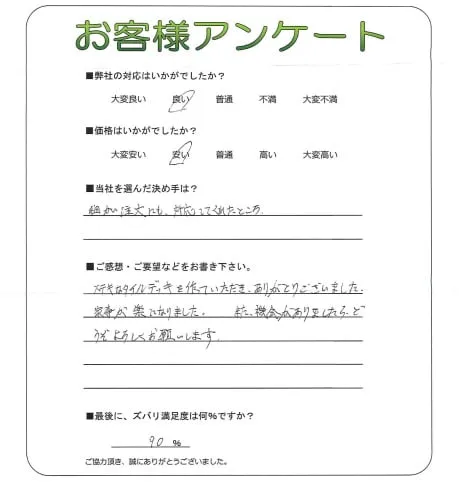 お客様アンケート
■弊社の対応はいかがでしたか？
大変良い 良い 普通 不満 大変不満
■価格はいかがでしたか？
大変安い 安い 普通 高い 大変高い
■当社を選んだ決め手は？
細かい注文にも、対応してくれたところ。
■ご感想・ご要望などをお書き下さい。
ステキなタイルデッキを作っていただき、ありがとうございました。
家事が楽になりました。 また、機会がありましたら、ど
うぞよろしくお願いします。
■最後に、ズバリ満足度は何％ですか？
90 %
ご協力頂き、誠にありがとうございました。